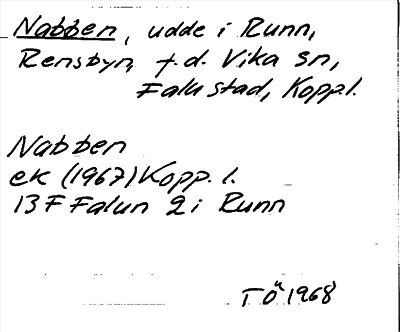 Nabben, udde i Runn,
Rensbyn, f.d. Vika sn,
Falu stad, Kopp.l.
Nabben
ek (1967) Kopp. l.
13 F Falun 2 i Runn
TÖ 1968